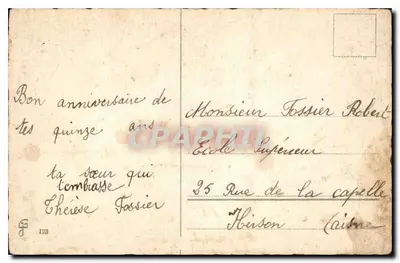 Bon anniversaire de
tes quinze ans
ta sœur qui
t'embrasse
Thérèse Fossier
Monsieur Fossier Robert
Ecole Supérieur
25 Rue de la capelle
Hirson (aisne
CPAPHIL